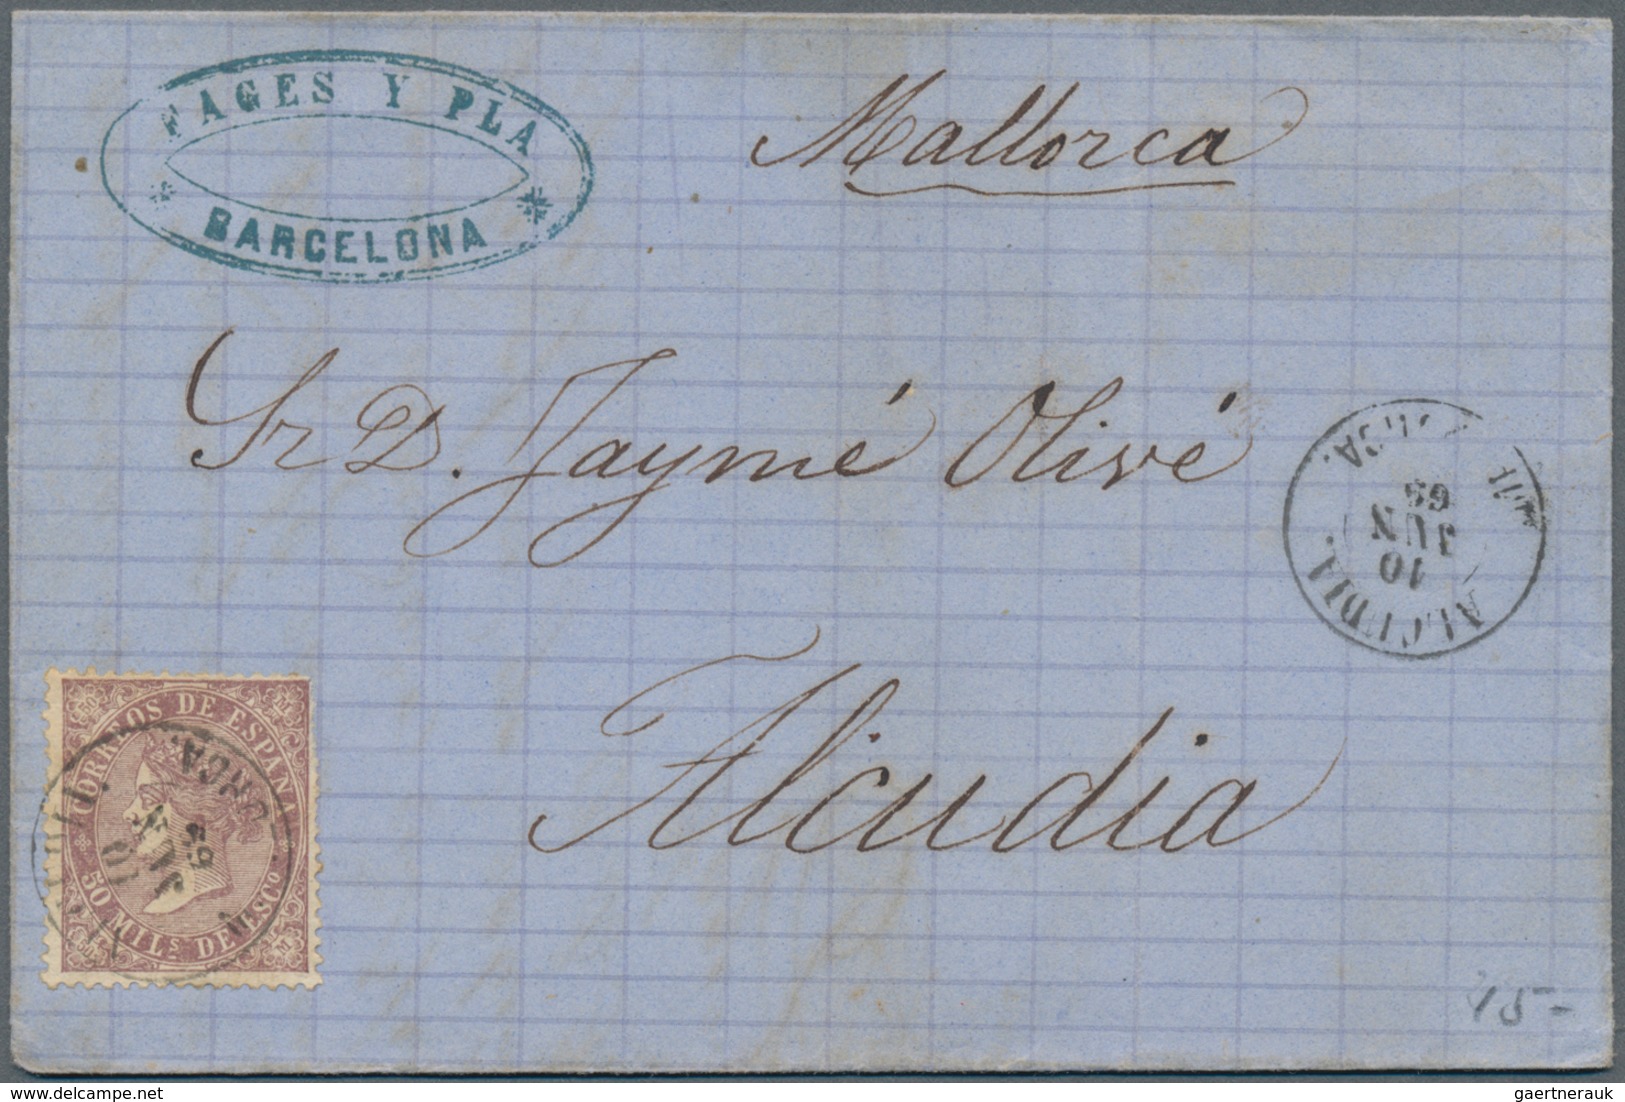 FAGES Y PLA
BARCELONA
Mallorca
Sr D. Jaymé Olivé
Alcudia
ALCUDIA.
10
JUN
69
CORREOS DE ESPAÑA
50 MILs DE ESCO.
10
JUN
69
15-
www.delcampe.net
gaertnerauk